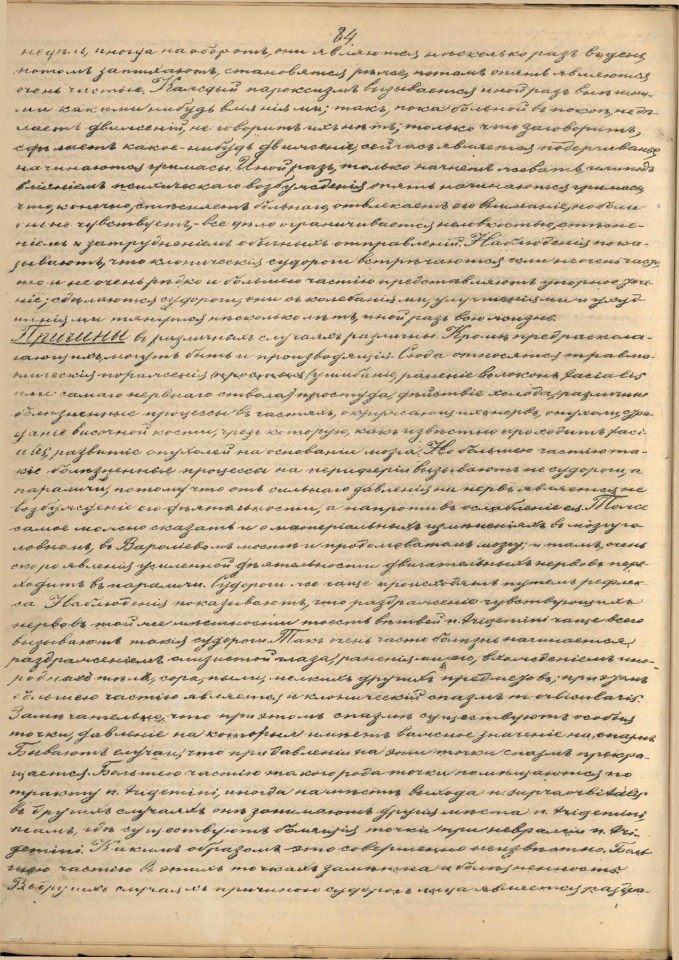 84
недѣли, иногда наоборотъ, они являются нѣсколько разъ въ день
потомъ затихаютъ, становятся рѣже, потомъ опять являются
очень частые. Каждый пароксизмъ вызывается иной разъ внѣшни-
ми какими нибудь вліяніями; такъ, пока больной въ покоѣ, не дѣ-
лаетъ движеній, не говоритъ ихъ нѣтъ; только что заговоритъ,
сдѣлаетъ какое-нибудь движеніе, сейчасъ является подергиванье,
начинаются гримасы. Иной разъ, только начнетъ жевать, или подъ
вліяніемъ психическаго возбужденія опять начинаются гримасы,
что, конечно, стѣсняетъ больнаго, отвлекаетъ его вниманіе, но боли
они не чувствуетъ, - все дѣло ограничивается неловкостью, стѣсне-
ніемъ и затрудненіемъ обычныхъ отправленій. Наблюденія пока-
зываютъ, что клоническія судороги встрѣчаются или не очень час-
то и не очень рѣдко и большею частію представляютъ упорное тече-
ніе; сдѣлаются судороги, они съ колебаніями, улучшеніями и ухуд
шеніями тянутся нѣсколько лѣтъ, иной разъ всю жизнь.
Причины въ различныхъ случаяхъ различны. Кромѣ предраспола-
гающихъ могутъ быть и производящія. Сюда относятся травма-
тическія пораженія (ушибаніе, раненіе волоконъ facialis
или самаго нервнаго ствола) простуда, дѣйствіе холода, различные
болѣзненные процессы въ частяхъ, окружающихъ нервъ, опухоли,
височной кости, чрезъ которую, какъ извѣстно проходитъ faci-
alis, развитіе опухолей на основаніи мозга. Но большею частію та-
кіе болѣзненные процессы на периферіи вызываютъ не судороги, а
параличи, потому что отъ сильнаго давленія на нервъ является не
возбужденіе его дѣятельности, а напротивъ ослабленіе ея. Тоже
самое можно сказать и о матеріальныхъ измѣненіяхъ въ мозгу го-
ловномъ, въ Вароліевомъ мосту и продолговатомъ мозгу; и тамъ, очень
скоро явленія усиленной дѣятельности двигательныхъ нервовъ пере-
ходятъ въ параличи. Судороги же чаще происходятъ путемъ рефлек-
са. Наблюденія показываютъ, что раздраженіе чувствующихъ
нервовъ той же мѣстности то есть вѣтвей n. trigemini чаще всего
вызываютъ такія судороги. Такъ очень часто болѣзнь начинается
раздраженіемъ слизистой глаза, раненія, вхожденіемъ ино-
роднаго тѣла, сора, пыли, мелкихъ другихъ предметовъ; при этомъ
большею частію является и клоническій спазмъ m. orbicularis.
Замѣчательно, что при этомъ спазмѣ существуютъ особыя
точки, давленіе на которыя имѣетъ важное значеніе на спазмъ.
Бываютъ случаи, что при давленіи на эти точки спазмъ прекра-
щается. Большею частію такого рода точки помѣщаются по
тракту n. trigemini, иногда на мѣстѣ выхода n. supraorbitalis
въ другихъ случаяхъ онѣ занимаютъ другія мѣста n. trigemini
тамъ, гдѣ существуютъ болящія точки при невралгіи n. tri-
gemini. Какимъ образомъ это совершенно неизвѣстно. Боль
шею частію въ этихъ точкахъ замѣтна и болѣзненность.
Въ другихъ случаяхъ причиною судорогъ лица является раздра-